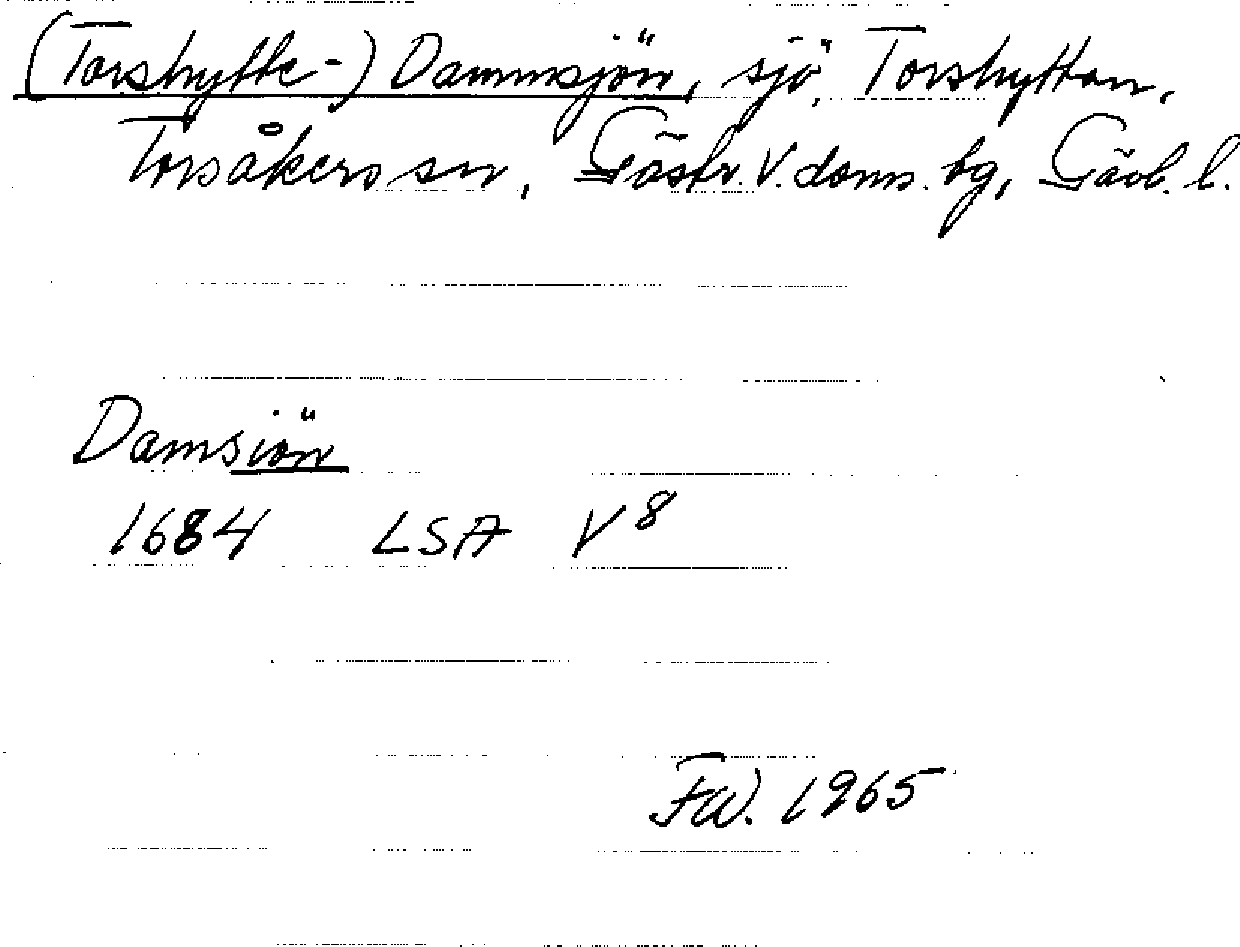 (Torshytte-) Dammsjön, sjö, Torshyttan,
Torsåkers sn, Gästr. V. doms. bg, Gävb. l.
Damsiön
1684 LSA V 8
FW. 1965